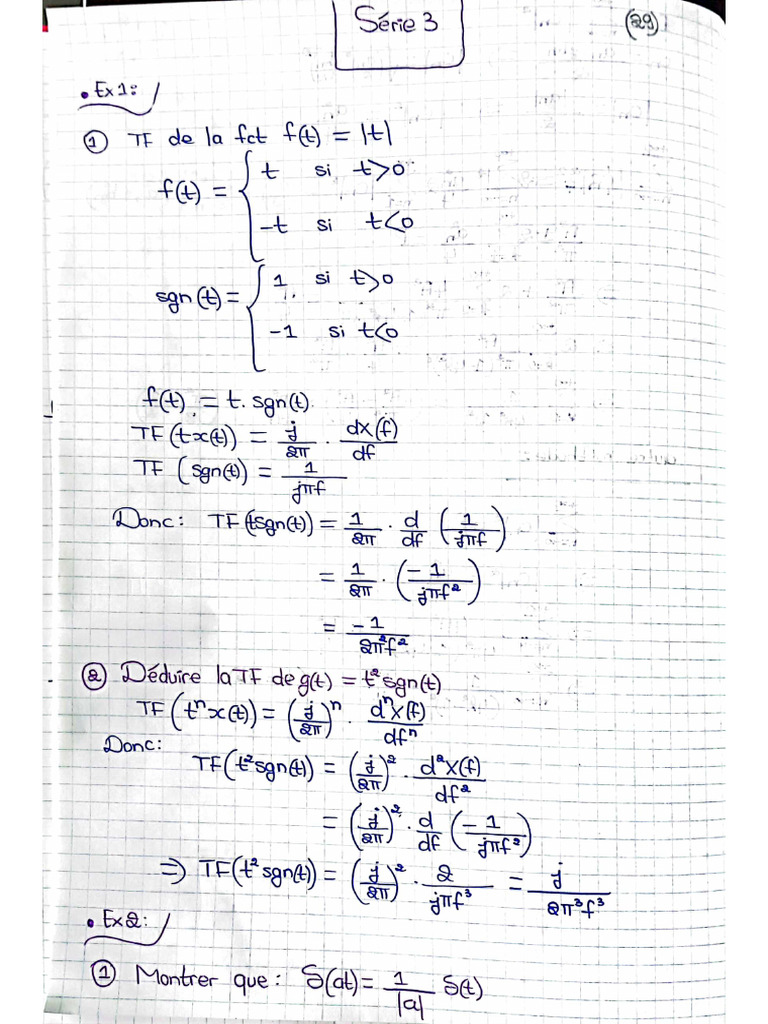 Série 3
(29)
• Ex1:
① TF de la fct f(t) = |t|
f(t) = { t si t>0
-t si t<0
sgn(t) = { 1 si t>0
-1 si t<0
f(t) = t.sgn(t)
TF(tx(t)) = j/2π . dX(f)/df
TF(sgn(t)) = 1/jπf
Donc: TF(tsgn(t)) = 1/2π . d/df (1/jπf)
= 1/2π . (-1/jπf²)
= -1/2π²f²
② Déduire la TF de g(t) = t²sgn(t)
TF(tⁿx(t)) = (j/2π)ⁿ . dⁿX(f)/dfⁿ
Donc:
TF(t²sgn(t)) = (j/2π)² . d²X(f)/df²
= (j/2π)² . d/df (-1/jπf²)
⇒ TF(t²sgn(t)) = (j/2π)² . 2/jπf³ = j/2π³f³
• Ex2:
① Montrer que: δ(at) = 1/|a| δ(t)